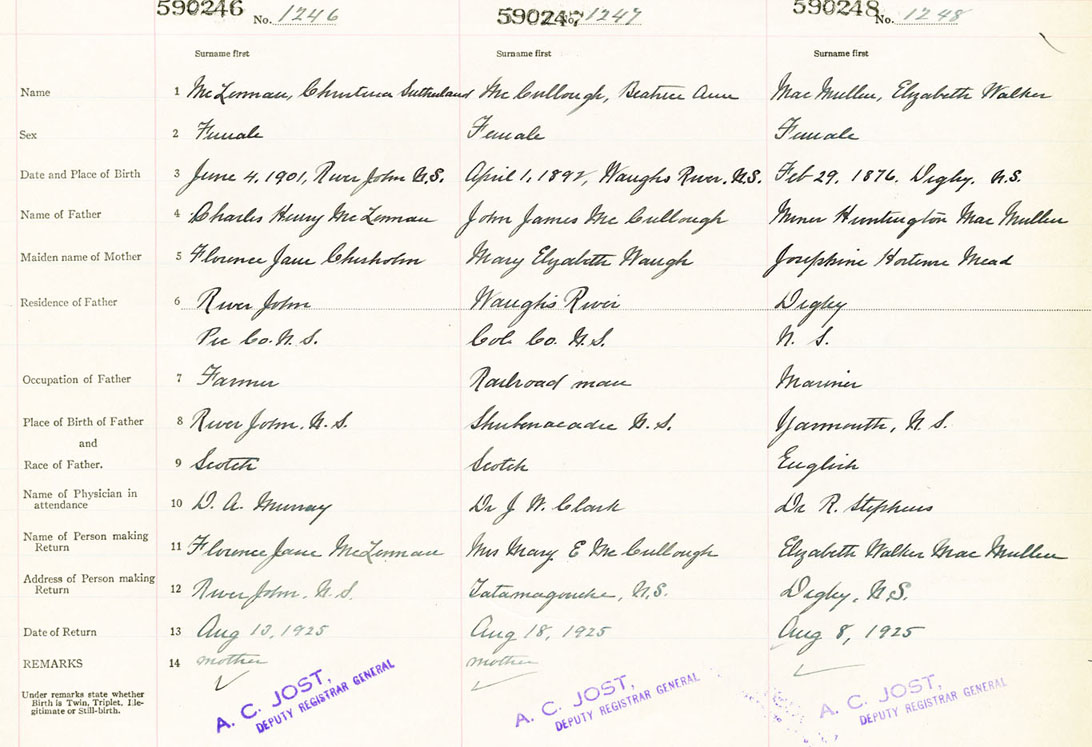 590246 No. 1246 590247 No. 1247 590248 No. 1248
Surname first Surname first Surname first
Name 1 McLennan, Christena Sutherland McCullough, Beatrice Ann MacMullen, Elizabeth Walker
Sex 2 Female Female Female
Date and Place of Birth 3 June 4, 1901, River John N.S. April 1, 1892, Waughs River, N.S. Feb 29, 1876. Digby, N.S.
Name of Father 4 Charles Henry McLennan John James McCullough Huntington MacMullen
Maiden name of Mother 5 Florence Jane Chisholm Mary Elizabeth Waugh Josephine Hortense Mead
Residence of Father 6 River John Waughs River Digby
Pic Co. N.S. Col. Co. N.S. N. S.
Occupation of Father 7 Farmer Railroad man Mariner
Place of Birth of Father 8 River John, N.S. Shubenacadie N.S. Yarmouth, N.S.
and
Race of Father. 9 Scotch Scotch English
Name of Physician in
attendance 10 D. A. Murray Dr J. W. Clark Dr R. Stephens
Name of Person making
Return 11 Florence Jane McLennan Mrs Mary E McCullough Elizabeth Walker MacMullen
Address of Person making
Return 12 River John, N.S. Tatamagouche, N.S. Digby, N.S.
Date of Return 13 Aug 13, 1925 Aug 18, 1925 Aug 8, 1925
REMARKS 14 mother mother
Under remarks state whether
Birth is Twin, Triplet, Ille-
gitimate or Still-birth.
A. C. JOST, A. C. JOST, A. C. JOST,
DEPUTY REGISTRAR GENERAL DEPUTY REGISTRAR GENERAL DEPUTY REGISTRAR GENERAL